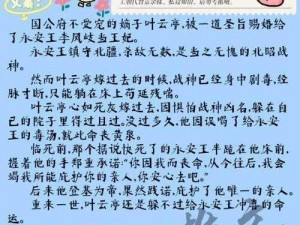 国公府不受宠的嫡子叶云亭,被一道圣旨赐婚给
了永安王李凤歧当王妃。
永安王镇守北疆,杀敌无数,是当之无愧的北昭战
神。
然而叶云亭嫁过去的时候,战神已经身中剧毒,经
脉寸断,只能躺在床上苟延残喘。
叶云亭心如死灰嫁过去,因惧怕战神凶名,躲在自
己的院子里得过且过。没过多久,他因误喝了给永安王
的毒汤,就此命丧黄泉。
临死前,那个据说快死了的永安王俯趴在他床前,
握着他的手郑重承诺:“你因我而丧命,从今往后,我会
竭我所能庇护你的亲人,你安心去吧。”
后来他登基为帝,果然践诺,庇护了他唯一的亲人。
重来一世,叶云亭还是躲不过给永安王冲喜的命
运。